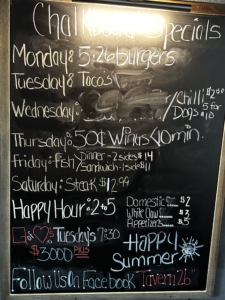 Chalkboard Specials
Monday: 5.26 burgers
Tuesday: Tacos
Wednesday:
Chili Dogs
5 for $10
Thursday: 50¢ Wings 10 min.
Friday: Fish Dinner - 2 sides $14
Sandwich - 1 side $11
Saturday: Steak $12.99
Happy Hour: 2 to 5
Domestic
White Claw
Appetizers
Tuesday's 7:30
$3000 plus
Happy Summer
Follow Us On Facebook Tavern 26